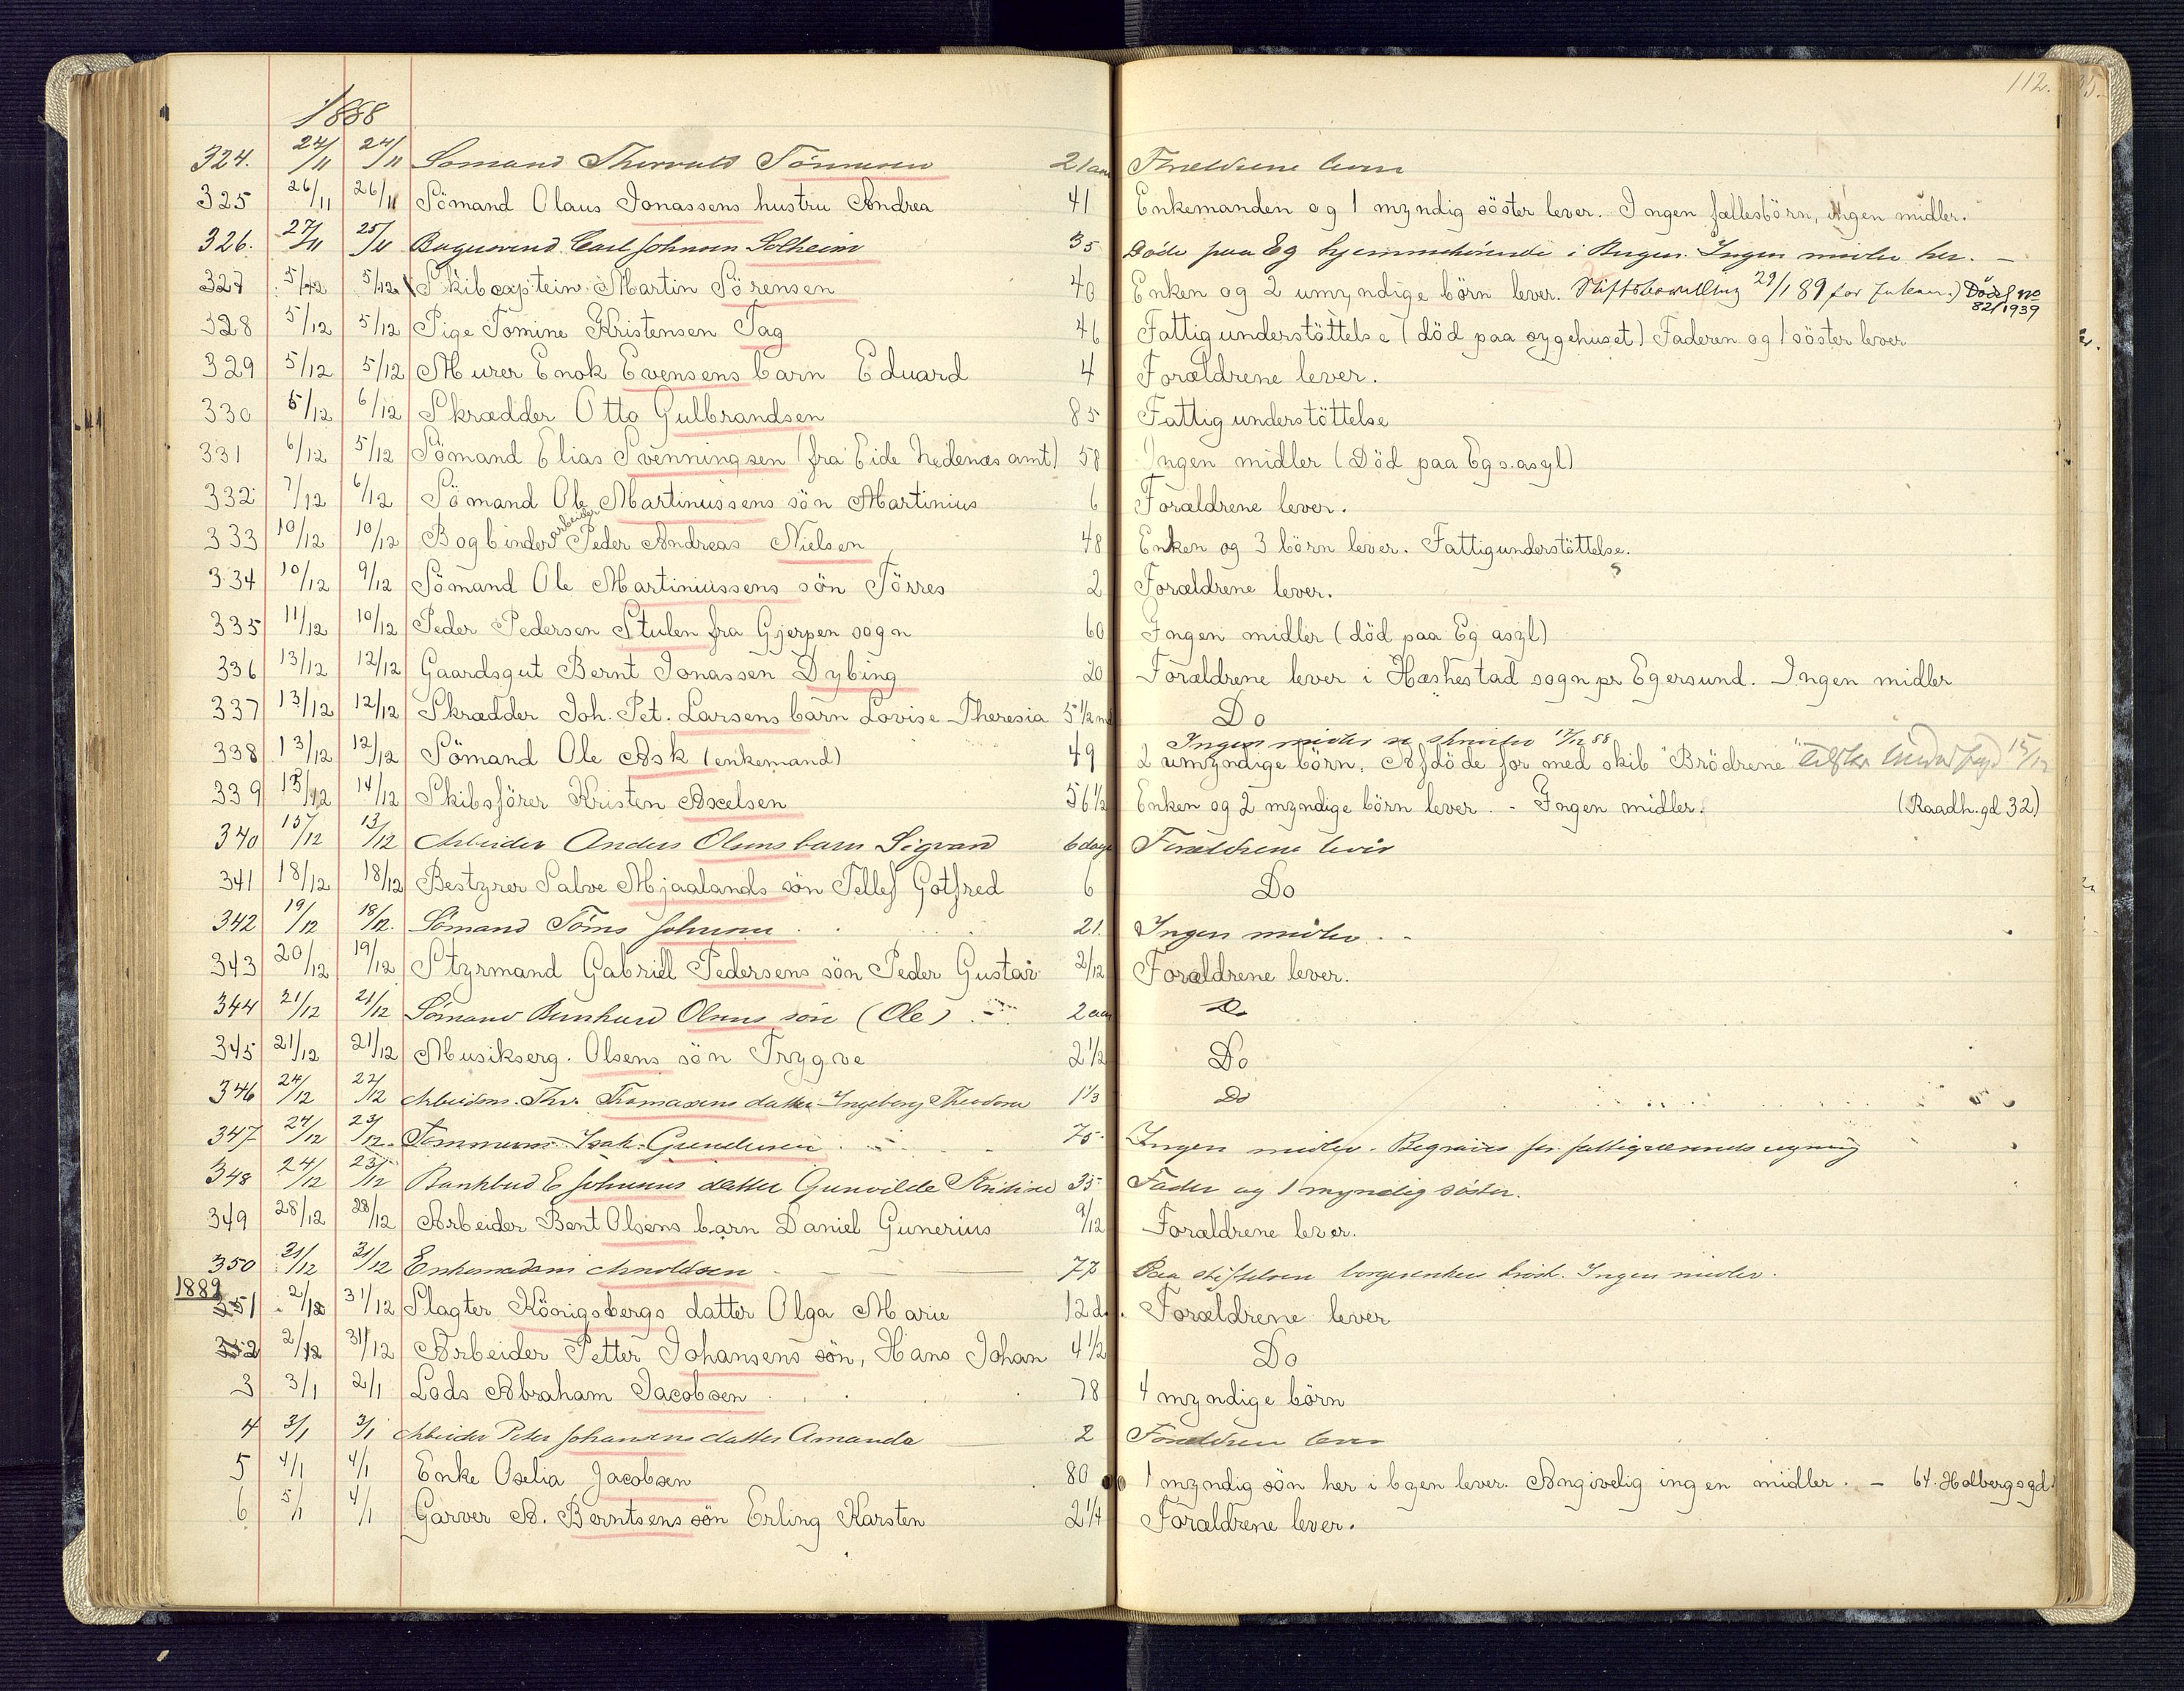 112.
1888
324. 24/11 24/11 Sømand Thorvald Tönnesen 21 aar Forældrene lever
325 26/11 26/11 Sömand Olaus Jonassens hustru Andrea 41 Enkemanden og 1 myndig söster lever. Ingen fællesbörn, ingen midler.
326. 27/11 25/11 Bagersvend Carl Johnsen Solheim 35 Döde paa Eg hjemmehörende i Bergen. Ingen midler her. —
327 5/12 5/12 Skibscaptein Martin Sörensen 40 Enken og 2 umyndige börn lever. Stiftsbevilling 29/1 89 for Enken.) Dödsf no 82/1939
328 5/12 5/12 Pige Tomine Kristensen Tag 46 Fattigunderstöttelse (död paa sygehuset) Faderen og 1 söster lever
329 5/12 5/12 Murer Enok Evensens barn Eduard 4 Forældrene lever.
330 6/12 6/12 Skrædder Otto Gulbrandsen 85 Fattigunderstöttelse
331 6/12 5/12 Sömand Elias Svenningsen (fra Eide Nedenæs amt) 58 Ingen midler (Död paa Egs. asyl)
332 7/12 6/12 Sömand Ole Martinussens sön Martinius 6 Forældrene lever.
333 10/12 10/12 Bogbinderarbeider Peder Andreas Nielsen 48 Enken og 3 börn lever. Fattigunderstöttelse.
334 10/12 9/12 Sömand Ole Martiniussens sön Törres 2 Forældrene lever.
335 11/12 10/12 Peder Pedersen Stulen fra Gjerpen sogn 60 Ingen midler (död paa Eg asyl)
336 13/12 12/12 Gaardsgut Bernt Jonassen Dybing 20 Forældrene lever i Hæskestad sogn pr Egersund. Ingen midler
337 13/12 12/12 Skrædder Joh. Pet. Larsens barn Lovise Theresia 5 1/2 md Do
Ingen midler se 17/12 88
338 13/12 12/12 Sömand Ole Ask (enkemand) 49 2 umyndige börn. Afdöde for med skib "Brödrene" 15/12
339 15/12 14/12 Skibsförer Kristen Axelsen 56 1/2 Enken og 2 myndige börn lever. - Ingen midler. (Raadh.gd 32)
340 15/12 13/12 Arbeider Anders Olsens barn Sigvard 6 dage Forældrene lever
341 18/12 18/12 Bestyrer Salve Mjaalands sön Tellef Gotfred 6 Do
342 19/12 18/12. Sömand Töms Johnsen 21. Ingen midler. -
343 20/12 19/12 Styrmand Gabriell Pedersens sön Peder Gustav 2/12 Forældrene lever.
344 21/12 21/12 Sömand Bernhard Olsens sön (Ole) 2 aar Do
345 21/12 21/12 Musikserg. Olsens sön Trygve 2 1/2 Do
346 24/12 22/12 Arbeidsm. Thr. Thomasens datter Ingeborg Theodora 1 1/3 Do
347 24/12 23/12 Tömmerm Isak Gundersen 75 Ingen midler. Begraves for fattigvæsenets regning
348 24/12 23/12 Bankbud E Johnsens datter Gunvilde Kristine 35 Fader og 1 myndig söster.
349 28/12 28/12 Arbeider Bent Olsens barn Daniel Gunerius 9/12 Forældrene lever.
350 31/12 31/12 Enkemadam Arnoldsen 77 Paa stiftelsen borgerenkers Ingen midler.
1889
351 2/12 31/12 Slagter Königsbergs datter Olga Marie 12 d. Forældrene lever
352 2/12 31/12 Arbeider Petter Johansens sön, Hans Johan 4 1/2 Do
3 3/1 2/1 Lods Abraham Jacobsen 78 4 myndige börn
4 3/1 3/1 Arbeider Peter Johansens datter Amanda 2 Forældrene lever
5 4/1 4/1 Enke Oselia Jacobsen 80 1 myndig sön her i byen lever. Angivelig ingen midler. — 64. Holbergsgd.
6 5/1 4/1 Garver A. Berntsens sön Erling Karsten 2 1/4 Forældrene lever.